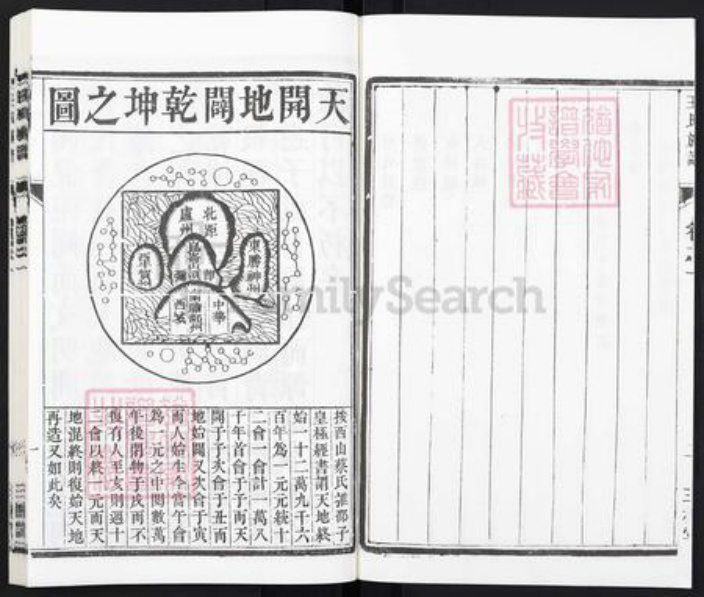 天開地闢乾坤之圖
北距
盧州
東勝神州
中華
西
按西山蔡氏推邵子
皇極經書謂天地終
始一十二萬九千六
百年為一元元統十
二會一會計一萬八
千年首會于子而天
開于子次會于丑而
地始闢又次會于寅
而人始生今當午會
為一元之中閱數萬
年後閉物于戌而不
復有人至亥則週十
二會以終一元而天
地混終則復始天地
再造又如此矣
FamilySearch